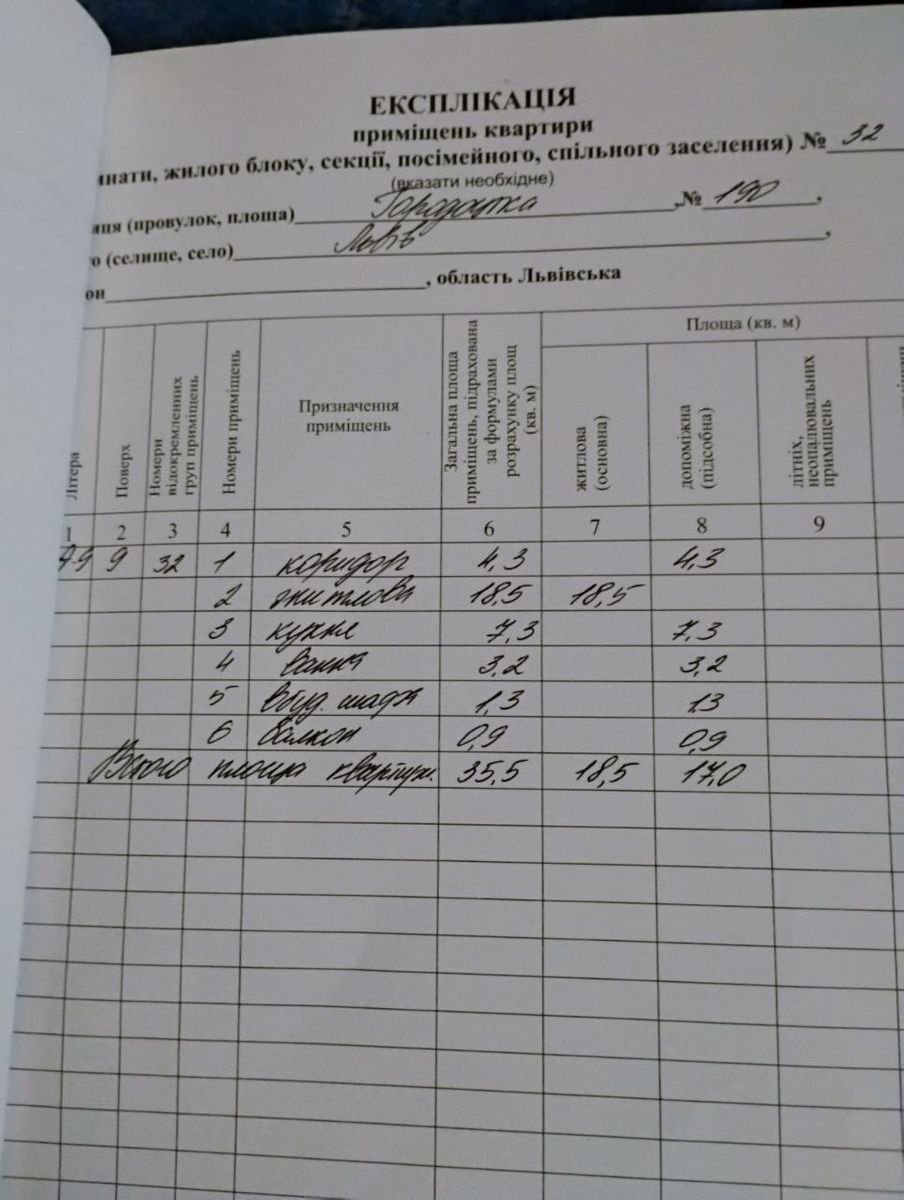 ЕКСПЛІКАЦІЯ
приміщень квартири
мнати, жилого блоку, секції, посімейного, спільного заселення) № 32
(вказати необхідне)
иця (провулок, площа) Городоцька ,№ 190 ,
о (селище, село) Львів ,
он , область Львівська
Літера Поверх Номери відокремленних груп приміщень Номери приміщень Призначення приміщень Загальна площа приміщень, підрахована за формулами розрахунку площ (кв. м) Площа (кв. м)
житлова (основна) допоміжна (підсобна) літніх, неопалювальних приміщень
1 2 3 4 5 6 7 8 9
А-9 9 32 1 коридор 4,3 4,3
2 житлова 18,5 18,5
3 кухня 7,3 7,3
4 ванна 3,2 3,2
5 вбуд. шафа 1,3 1,3
6 балкон 0,9 0,9
Всього площа квартири 35,5 18,5 17,0